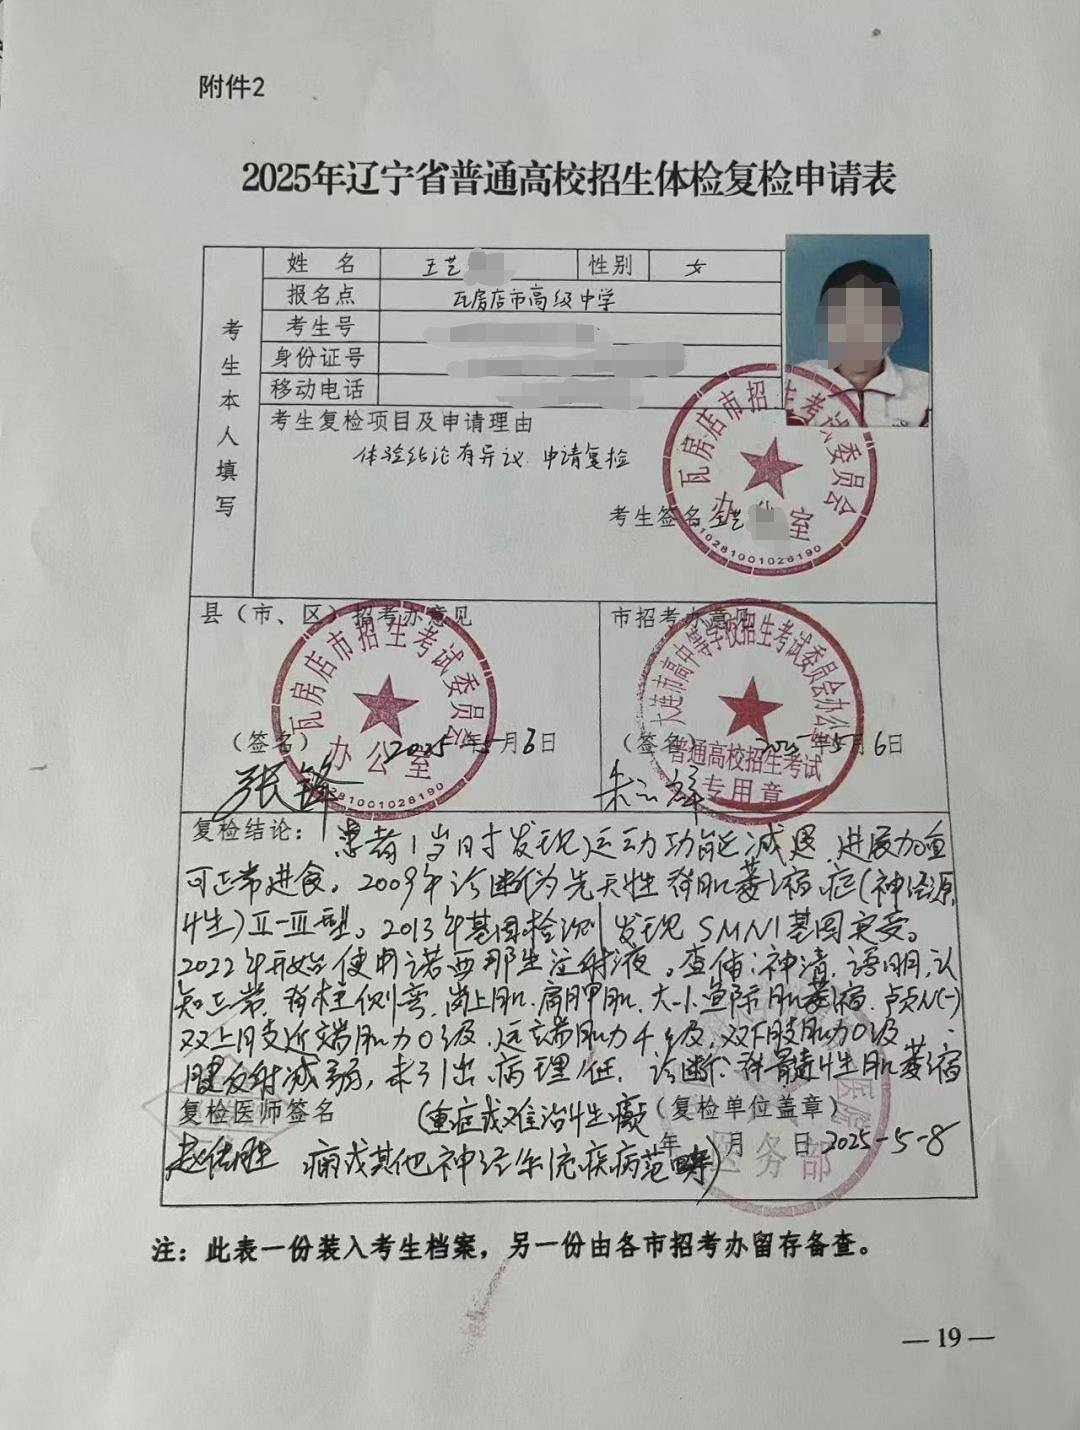 附件2
2025年辽宁省普通高校招生体检复检申请表
考生本人填写
姓 名 王艺 性别 女
报名点 瓦房店市高级中学
考生号
身份证号
移动电话
考生复检项目及申请理由
体验结论有异议 申请复检
考生签名 王艺
瓦房店市招生考试委员会
办公室
210281001026190
县（市、区）招考办意见
瓦房店市招生考试委员会
办公室
（签名） 2025年5月6日
张锋
市招考办意见
大连市高中等学校招生考试委员会办公室
普通高校招生考试
专用章
（签名） 2025年5月6日
复检结论：患者1岁时发现运动功能减退，进展加重
可正常进食。2009年诊断为先天性脊肌萎缩症(神经源
性)Ⅱ-Ⅲ型。2013年基因检测发现SMN1基因突变。
2022年开始使用诺西那生注射液。查体：神清，语明，认
知正常，脊柱侧弯，岗上肌、肩胛肌、大小鱼际肌萎缩，颅N(-)
双上肢近端肌力0级，远端肌力4级，双下肢肌力0级，
腱反射减弱，未引出病理征。诊断：脊髓性肌萎缩
复检医师签名 (重症或难治性癫 （复检单位盖章）
赵 胜 痫或其他神经系统疾病范畴) 年 月 日 2025-5-8
医院
医务部
注：此表一份装入考生档案，另一份由各市招考办留存备查。
— 19 —